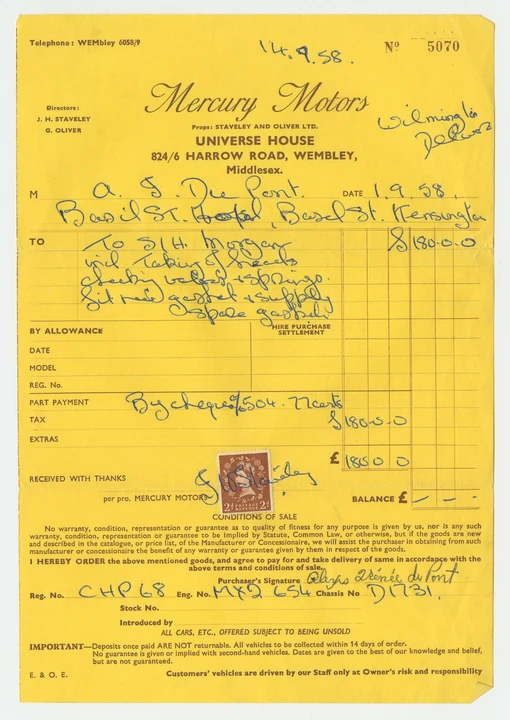 Telephone: WEMbley 6058/9
14.9.58.
Nº 5070
Directors:
J. H. STAVELEY
G. OLIVER
Mercury Motors
Props: STAVELEY AND OLIVER LTD.
UNIVERSE HOUSE
824/6 HARROW ROAD, WEMBLEY,
Middlesex.
Wilmington
M A. I. Du Pont. DATE 1.9.58.
Basil St. Hotel, Basil St. Kensington
TO To S/H. Morgan £ 180-0-0
incl. Taking of heads
checking valves + springs.
fit new gasket + supply
spare gasket.
BY ALLOWANCE
HIRE PURCHASE
SETTLEMENT
DATE
MODEL
REG. No.
PART PAYMENT By cheque $504.77 cents
TAX £ 180-0-0
EXTRAS
£ 180 0 0
RECEIVED WITH THANKS
per pro. MERCURY MOTORS
2d POSTAGE REVENUE 2d
BALANCE £ - - -
CONDITIONS OF SALE
No warranty, condition, representation or guarantee as to quality of fitness for any purpose is given by us, nor is any such
warranty, condition, representation or guarantee to be implied by Statute, Common Law, or otherwise, but if the goods are new
and described in the catalogue, or price list, of the Manufacturer or Concessionaire, we will assist the purchaser in obtaining from such
manufacturer or concessionaire the benefit of any warranty or guarantee given by them in respect of the goods.
I HEREBY ORDER the above mentioned goods, and agree to pay for and take delivery of same in accordance with the
above terms and conditions of sale.
Purchaser's Signature Alexis I. Irénée du Pont
Reg. No. CHP 68 Eng. No. MX2 654 Chassis No D1731.
Stock No.
Introduced by
ALL CARS, ETC., OFFERED SUBJECT TO BEING UNSOLD
IMPORTANT—Deposits once paid ARE NOT returnable. All vehicles to be collected within 14 days of order.
No guarantee is given or implied with second-hand vehicles. Dates are given to the best of our knowledge and belief,
but are not guaranteed.
E. & O. E. Customers' vehicles are driven by our Staff only at Owner's risk and responsibility